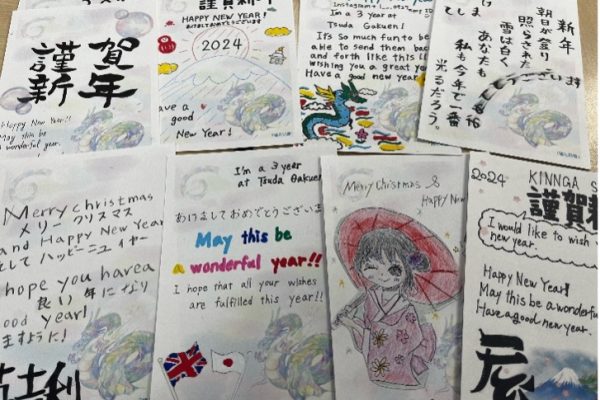 謹賀
新年
Happy New Year!
May this be
HAPPY NEW YEAR!
2024
have a
good
New Year!
I'm a 3 year at
Tsuda Gakuen!
It's so much fun to be
able to send them back
and forth like this!
wishing you a great year
Have a good new year
新年
朝日が登り
照らされた
雪は白く
あなたも
私も今年で一番
光るだろう。
Merry christmas
メリー クリスマス
and Happy New Year
そして ハッピーニューイヤー
hope you have a
良い 年になり
good year!
ますように!
吉利
I'm a 3 year
at Tsuda Gakuen
あけましておめでとうございま
May this be
a wonderful year!!
I hope that all your wishes
are fulfilled this year!!
Merry Christmas &
Happy New
2024 KINNGA S
謹賀新
I would like to wish
new year.
Happy New Year!
May this be a wonderful
Have a good new year.
辰